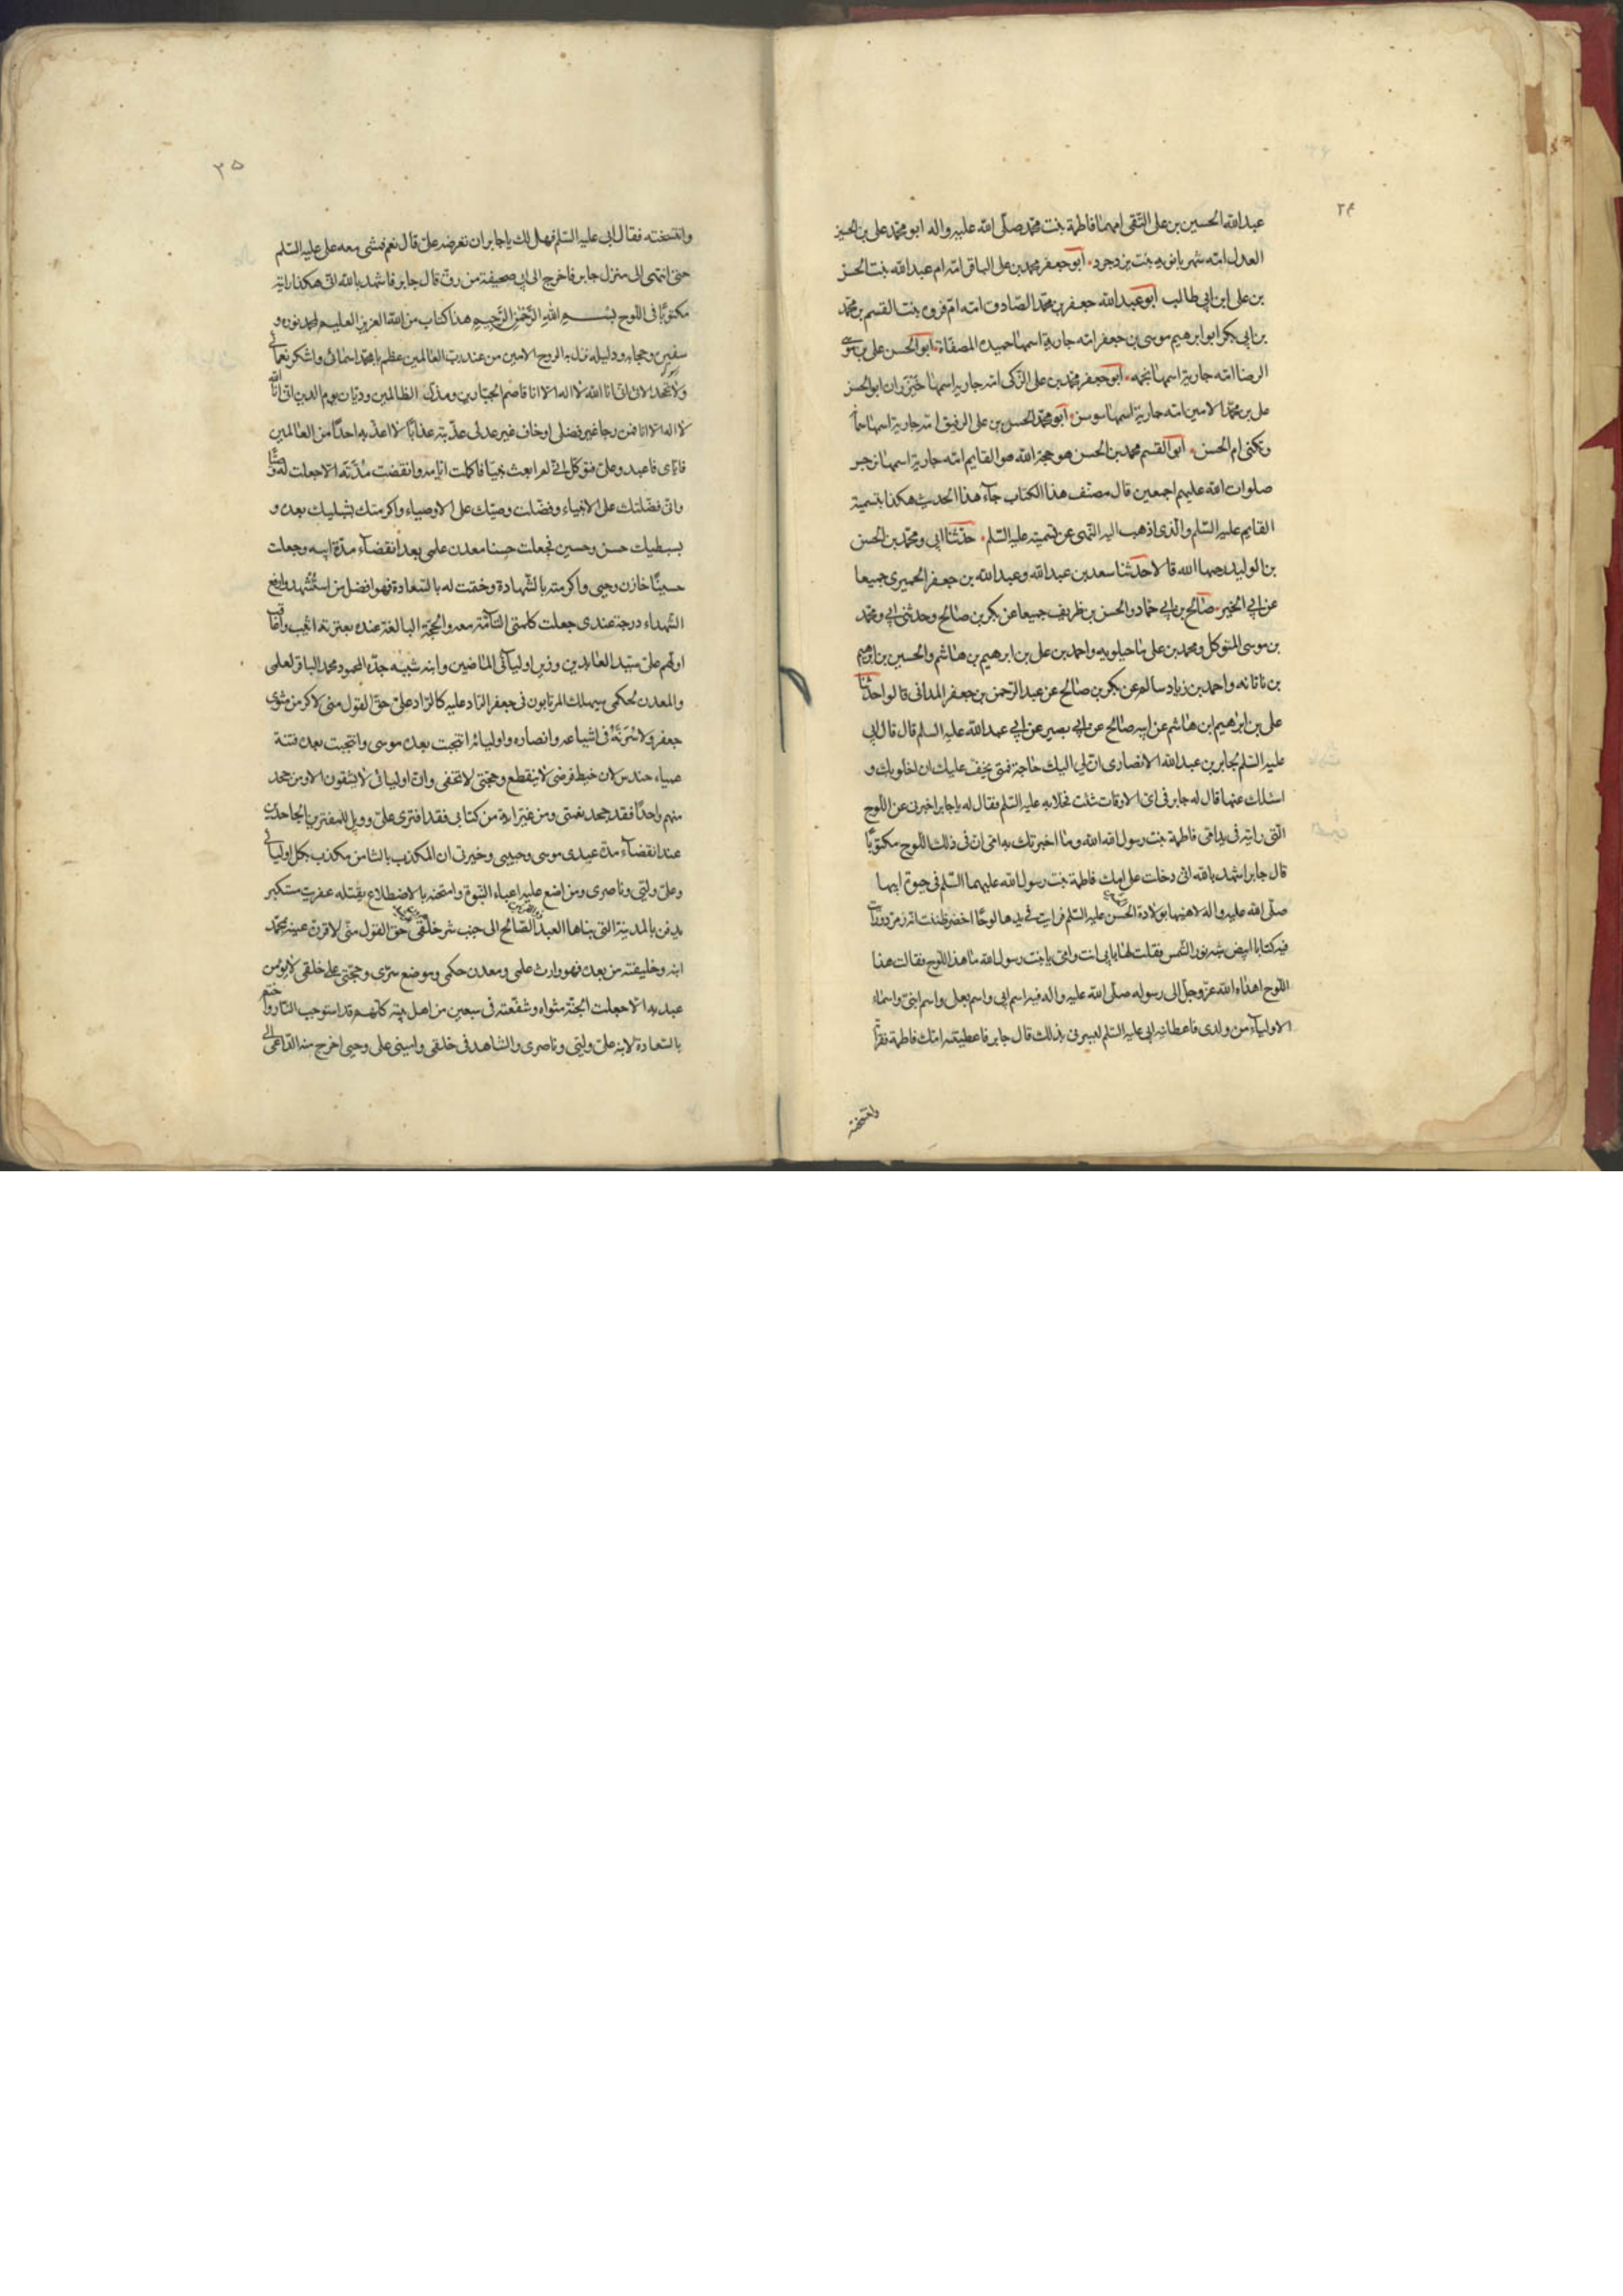 ۲۴
عبدالله الحسين بن على التقى امهما فاطمة بنت محمد صلى الله عليه واله ابو محمد على بن الحسين
العدل امه شهربانويه بنت يزدجرد ابو جعفر محمد بن على الباقر امه ام عبدالله بنت الحسن
بن على ابن ابى طالب ابو عبد الله جعفر بن محمد الصادق امه ام فروه بنت القسم بن محمد
بن ابى بكر ابو ابرهيم موسى بن جعفر امه جارية اسمها حميده المصفاة ابو الحسن على بن موسى
الرضا امه جارية اسمها نجمه ابو جعفر محمد بن على الزكى امه جارية اسمها خيزران ابو الحسن
على بن محمد الامين امه جارية اسمها سوسن ابو محمد الحسن بن على الرفيق امه جارية اسمها سمانه
وتكنى ام الحسن ابو القسم محمد بن الحسن هو حجة الله هو القايم امه جارية اسمها نرجس
صلوات الله عليهم اجمعين قال مصنف هذا الكتاب جآء هذا الحديث هكذا بتسمية
القايم عليه السلم والذى اذهب اليه النهى عن تسميته عليه السلم حدثنا ابى ومحمد بن الحسن
بن الوليد رحمهما الله قالا حدثنا سعد بن عبدالله وعبدالله بن جعفر الحميرى جميعا
عن ابى الخير صالح بن ابى حماد والحسن بن ظريف جميعا عن بكر بن صالح وحدثنى ابى ومحمد
بن موسى المتوكل ومحمد بن على ماجيلويه واحمد بن على بن ابرهيم بن هاشم والحسين بن ابرهيم
بن ناتانه واحمد بن زياد سالم عن بكر بن صالح عن عبد الرحمن بن جعفر المدانى قالوا حدثنا
على بن ابرهيم ابن هاشم عن ابيه صالح عن ابى بصير عن ابى عبدالله عليه السلم قال قال ابى
عليه السلم لجابر بن عبدالله الانصارى ان لى اليك حاجة فمتى يخف عليك ان اخلو بك و
اسئلك عنها قال له جابر فى اى الاوقات شئت فخلا به عليه السلم فقال له يا جابر اخبرنى عن اللوح
التى رايته فى يد امى فاطمة بنت رسول الله وما اخبرتك به امى ان فى ذلك اللوح مكتوبًا
قال جابر اشهد بالله انى دخلت على امك فاطمة بنت رسول الله عليهما السلم فى حيوة ابيها
صلى الله عليه واله لاهنيها بولادة الحسن عليه السلم فرايت فى يدها لوحًا اخضر ظننت انه زمرد ورايت
فيه كتابا ابيض شبه نور الشمس فقلت لها بابى انت وامى يا بنت رسول الله ما هذا اللوح فقالت هذا
اللوح اهداه الله عز وجل الى رسوله صلى الله عليه واله فيه اسم ابى واسم بعلى واسم ابنى واسماء
الاوليآء من ولدى فاعطانيه ابى عليه السلم ليسرنى بذلك قال جابر فاعطيتنيه امك فاطمة فقراته
وانتسخته
۲۵
وانتسخته فقال ابى عليه السلم فهل لك يا جابر ان تعرضه على قال نعم فمشى معه على عليه السلم
حتى انتهى الى منزل جابر فاخرج الى ابى صحيفة من رق قال جابر فاشهد بالله انى هكذا رايته
مكتوبًا فى اللوح بسم الله الرحمن الرحيم هذا كتاب من الله العزيز العليم لمحمد نوره و
سفيره وحجابه ودليله نزل به الروح الامين من عند رب العالمين عظم يا محمد اسمائى واشكر نعمائى
ولا تجحد الائى انى انا الله لا اله الا انا قاصم الجبارين ومذل الظالمين وديان يوم الدين انى انا الله
لا اله الا انا فمن رجا غير فضلى او خاف غير عدلى عذبته عذابًا لا اعذبه احدًا من العالمين
فاياى فاعبد وعلى فتوكل انى لم ابعث نبيًا فاكملت ايامه وانقضت مدته الا جعلت له وصيًا
وانى فضلتك على الانبياء وفضلت وصيك على الاوصياء واكرمتك بشبليك بعده و
بسبطيك حسن وحسين فجعلت حسنا معدن علمى بعد انقضآء مدة ابيه وجعلت
حسينًا خازن وحيى واكرمته بالشهادة وختمت له بالسعادة فهو افضل من استشهد وارفع
الشهداء درجة عندى جعلت كلمتى التآمة معه والحجة البالغة عنده بعترته اثيب واعاقب
اولهم على سيد العابدين وزين اوليائى الماضين وابنه شبيه جده المحمود محمد الباقر لعلمى
والمعدن لحكمى سيهلك المرتابون فى جعفر الراد عليه كالراد على حق القول منى لاكرمن مثوى
جعفر ولاسرنه فى اشياعه وانصاره واوليائه انتجبت بعده موسى وانتجبت بعده فتنة
عمياء حندس لان خيط فرضى لا ينقطع وحجتى لا تخفى وان اوليائى لا يشقون الا ومن جحد
منهم واحدًا فقد جحد نعمتى ومن غير اية من كتابى فقد افترى على وويل للمفترين الجاحدين
عند انقضآء مدة عبدى موسى وحبيبى وخيرتى ان المكذب بالثامن مكذب بكل اوليائى
وعلى وليى وناصرى ومن اضع عليه اعباء النبوة وامتحنه بالاضطلاع يقتله عفريت مستكبر
يدفن بالمدينة التى بناها العبد الصالح الى جنب شر خلقى حق القول منى لاقرن عينه بمحمد
ابنه وخليفته من بعده فهو وارث علمى ومعدن حكمى وموضع سرى وحجتى على خلقى لا يؤمن
عبد به الا جعلت الجنة مثواه وشفعته فى سبعين من اهل بيته كلهم قد استوجب النار واختم
بالسعادة لابنه على وليى وناصرى والشاهد فى خلقى وامينى على وحيى اخرج منه الداعى الى